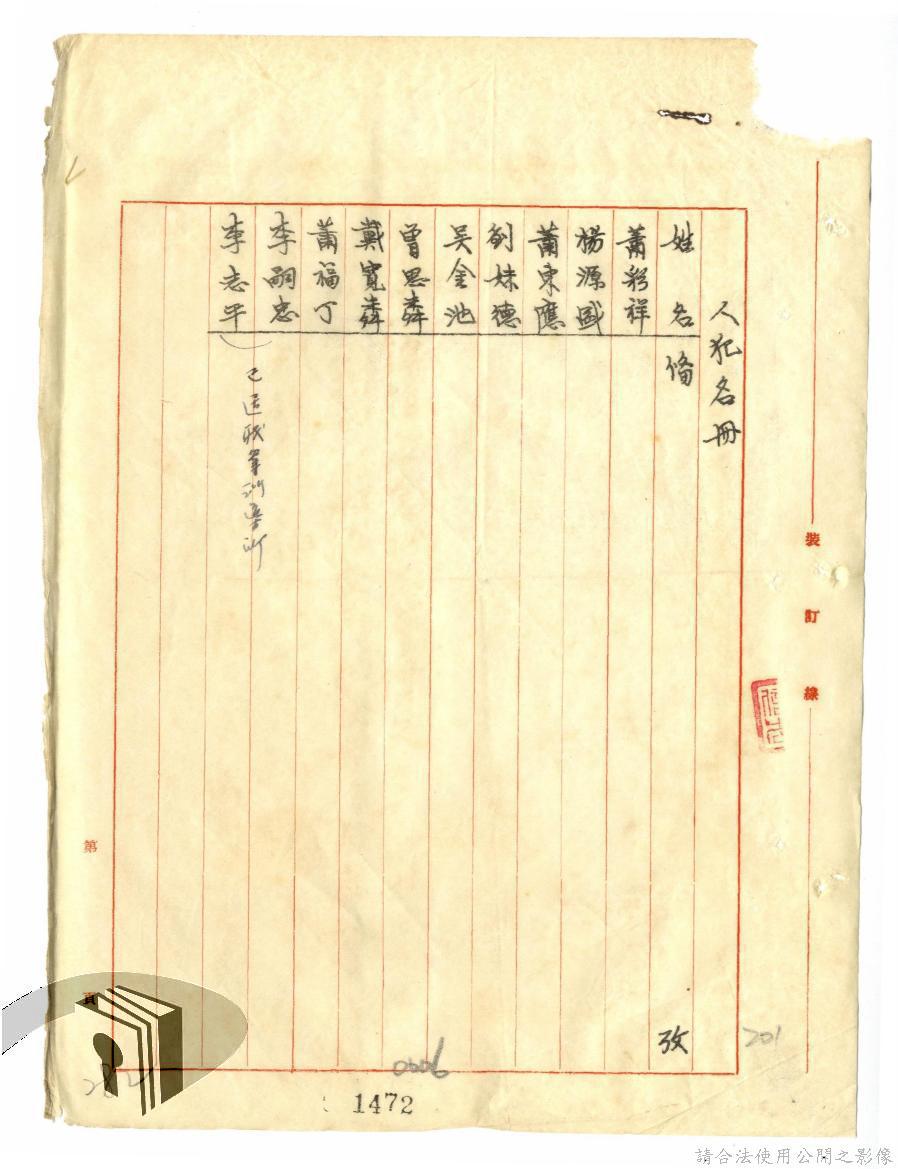 人犯名冊
姓名 備 攷
蕭彩祥
楊源盛
蕭東應
劉妹德
吳金池
曾思粦
戴寬粦
蕭福丁
李嗣忠
李志平
已送職軍
裝訂線
第
頁
201
282
0006
1472
請合法使用公開之影像